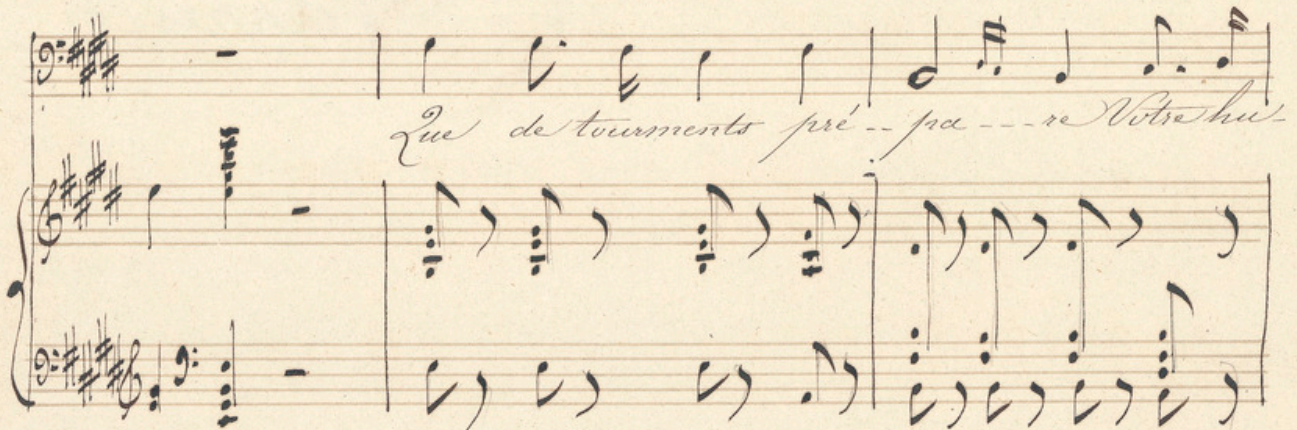 Que de tourments pré-- pa---re Votre hu-